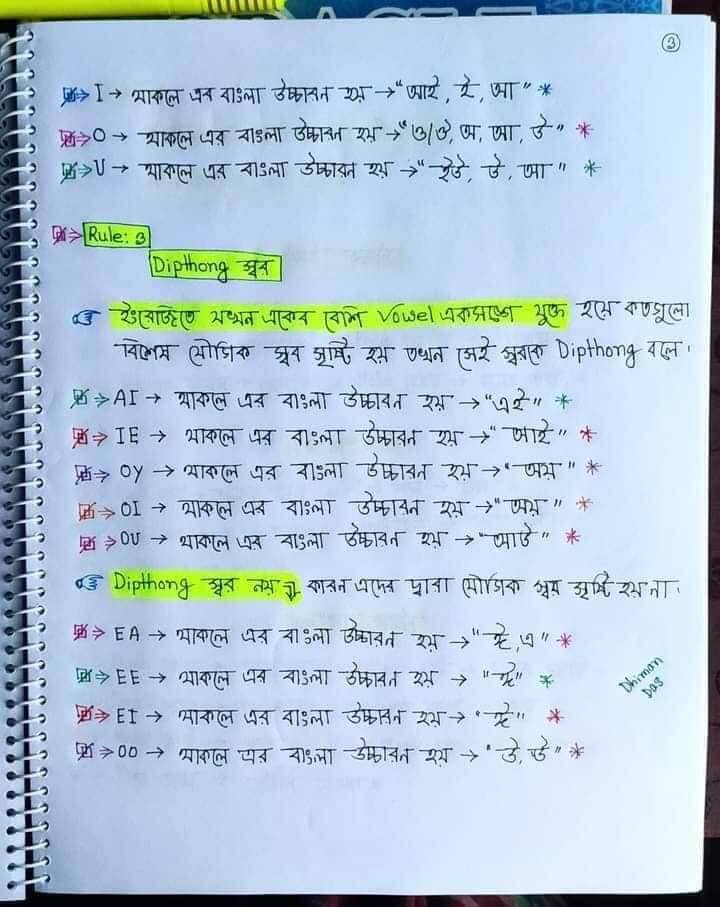 ③
I → থাকলে এর বাংলা উচ্চারন হয় → "আই, ই, আ" *
O → থাকলে এর বাংলা উচ্চারন হয় → "ও/ঔ, অ, আ, উ" *
U → থাকলে এর বাংলা উচ্চারন হয় → "ইউ, উ, আ" *
⇒ Rule: 3
Dipthong স্বর
ইংরেজিতে যখন একের বেশি Vowel একসঙ্গে যুক্ত হয়ে কতগুলো
বিশেষ যৌগিক স্বর সৃষ্টি হয় তখন সেই স্বরকে Dipthong বলে।
⇒ AI → থাকলে এর বাংলা উচ্চারন হয় → "এই" *
⇒ IE → থাকলে এর বাংলা উচ্চারন হয় → "আই" *
⇒ OY → থাকলে এর বাংলা উচ্চারন হয় → "অয়" *
⇒ OI → থাকলে এর বাংলা উচ্চারন হয় → "অয়" *
⇒ OU → থাকলে এর বাংলা উচ্চারন হয় → "আউ" *
Dipthong স্বর নয় কারন এদের দ্বারা যৌগিক স্বর সৃষ্টি হয় না।
⇒ EA → থাকলে এর বাংলা উচ্চারন হয় → "ঈ, এ" *
⇒ EE → থাকলে এর বাংলা উচ্চারন হয় → "ঈ" *
⇒ EI → থাকলে এর বাংলা উচ্চারন হয় → "ঈ" *
⇒ OO → থাকলে এর বাংলা উচ্চারন হয় → "উ, উ" *
Dhiman
Das